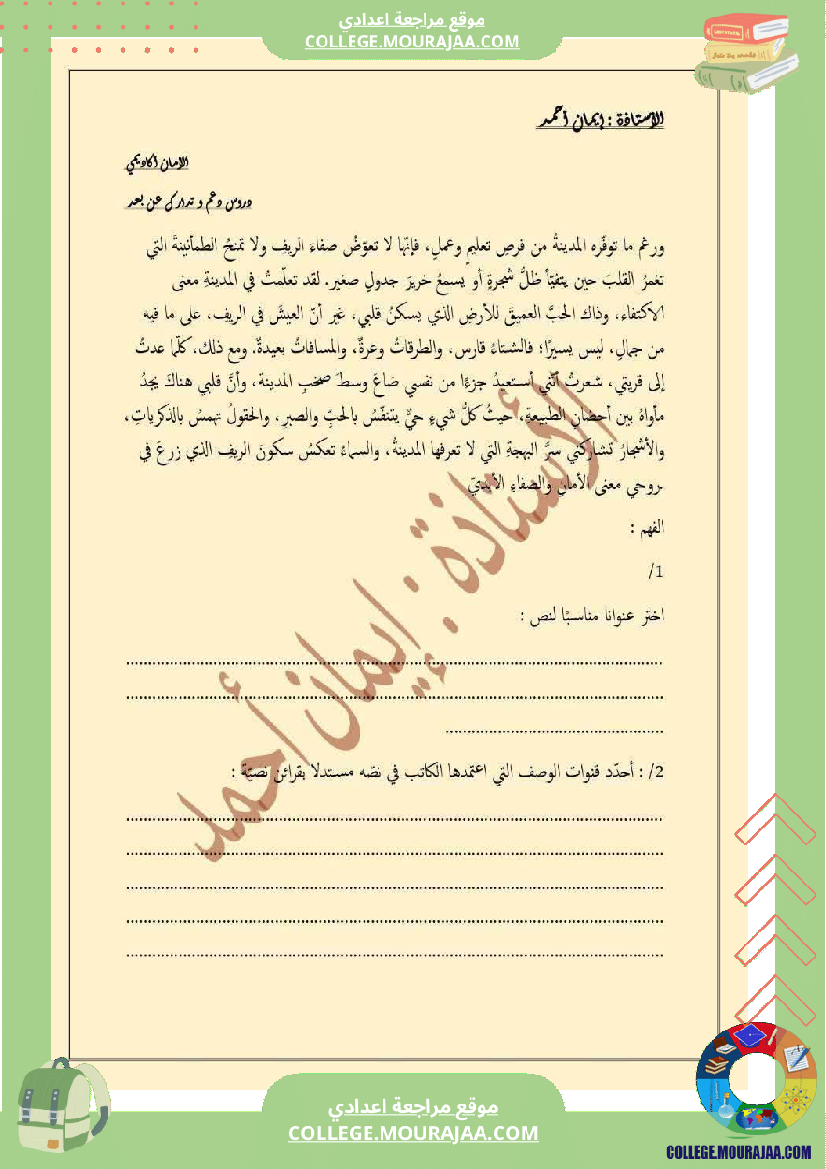 موقع مراجعة اعدادي
COLLEGE.MOURAJAA.COM
الاستاذة : إيمان أحمد
الامان أكاديمي
دروس دعم و تدارك عن بعد
ورغم ما توفّره المدينةُ من فرصِ تعليمٍ وعملٍ، فإنّها لا تعوّضُ صفاءَ الريفِ ولا تمنحُ الطمأنينةَ التي
تغمرُ القلبَ حين يتفيّأُ ظلَّ شجرةٍ أو يسمعُ خريرَ جدولٍ صغيرٍ. لقد تعلّمتُ في المدينةِ معنى
الاكتفاء، وذاك الحبَّ العميقَ للأرضِ الذي يسكنُ قلبي، غير أنّ العيشَ في الريف، على ما فيه
من جمالٍ، ليس يسيرًا؛ فالشتاءُ قارس، والطرقاتُ وعرةٌ، والمسافاتُ بعيدةٌ. ومع ذلك، كلّما عدتُ
إلى قريتي، شعرتُ أنّني أستعيدُ جزءًا من نفسي ضاعَ وسطَ صخبِ المدينة، وأنَّ قلبي هناك يجدُ
مأواهُ بين أحضانِ الطبيعةِ، حيثُ كلُّ شيءٍ حيٍّ يتنفّسُ بالحبِّ والصبرِ، والحقولُ تهمسُ بالذكرياتِ،
والأشجارُ تشاركني سرَّ البهجةِ التي لا تعرفها المدينةُ، والسماءُ تعكسُ سكونَ الريفِ الذي زرعَ في
روحي معنى الأمانِ والصفاءِ الأبديّ.
الفهم :
1/
اختر عنوانا مناسبًا لنص :
2/ : أحدّد قنوات الوصف التي اعتمدها الكاتب في نصّه مستدلا بقرائن نصيّة :
الأستاذة : إيمان أحمد
موقع مراجعة اعدادي
COLLEGE.MOURAJAA.COM
COLLEGE.MOURAJAA.COM